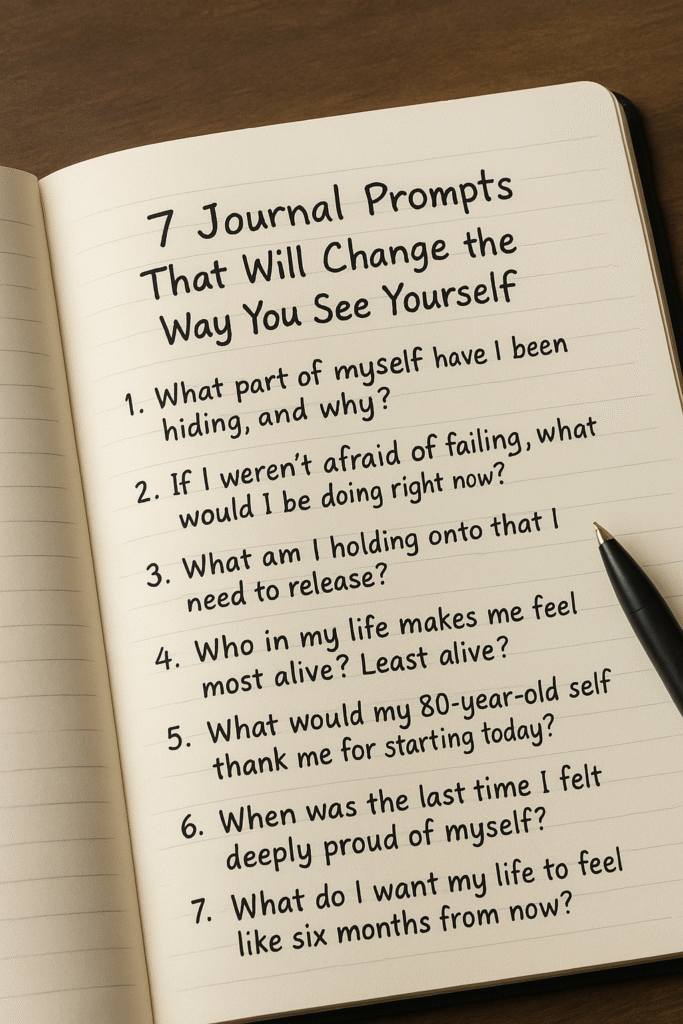 7 Journal Prompts
That Will Change the
Way You See Yourself
1. What part of myself have I been
hiding, and why?
2. If I weren't afraid of failing, what
would I be doing right now?
3. What am I holding onto that I
need to release?
4. Who in my life makes me feel
most alive? Least alive?
5. What would my 80-year-old self
thank me for starting today?
6. When was the last time I felt
deeply proud of myself?
7. What do I want my life to feel
like six months from now?